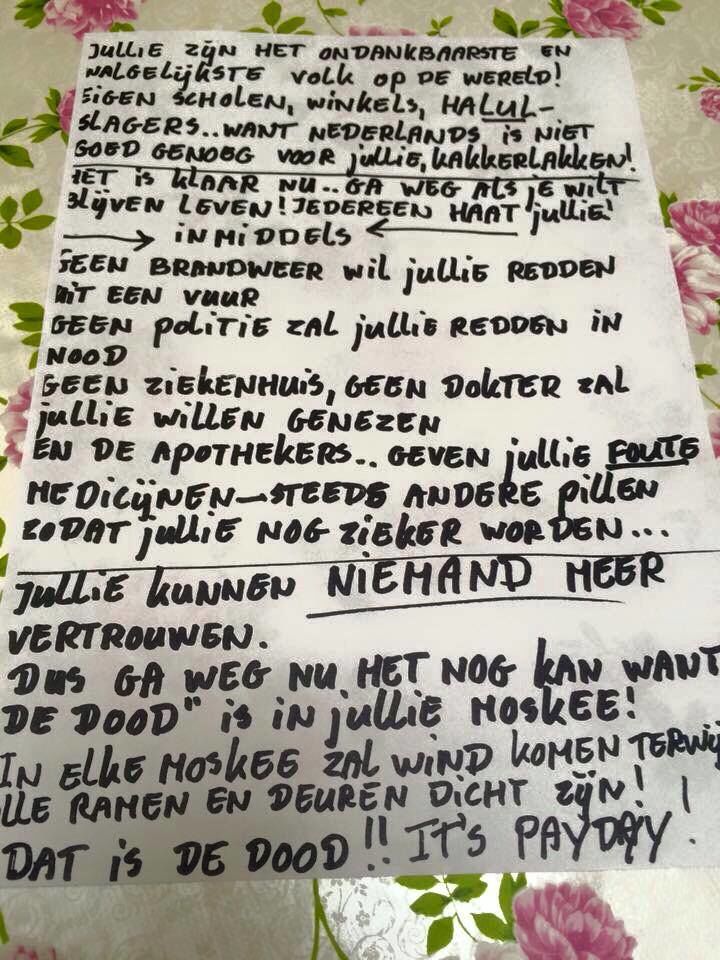 JULLIE ZIJN HET ONDANKBAARSTE EN
WALGELIJKSTE VOLK OP DE WERELD!
EIGEN SCHOLEN, WINKELS, HALUL-
SLAGERS.. WANT NEDERLANDS IS NIET
GOED GENOEG VOOR JULLIE, KAKKERLAKKEN!
HET IS KLAAR NU.. GA WEG ALS JE WILT
BLIJVEN LEVEN! IEDEREEN HAAT JULLIE!
→ INMIDDELS ←
GEEN BRANDWEER WIL JULLIE REDDEN
UIT EEN VUUR
GEEN POLITIE ZAL JULLIE REDDEN IN
NOOD
GEEN ZIEKENHUIS, GEEN DOKTER ZAL
JULLIE WILLEN GENEZEN
EN DE APOTHEKERS.. GEVEN JULLIE FOUTE
MEDICIJNEN—STEEDS ANDERE PILLEN
ZODAT JULLIE NOG ZIEKER WORDEN...
JULLIE KUNNEN NIEMAND MEER
VERTROUWEN.
DUS GA WEG NU HET NOG KAN WANT
DE DOOD" IS IN JULLIE MOSKEE!
IN ELKE MOSKEE ZAL WIND KOMEN TERWIJ
LLE RAMEN EN DEUREN DICHT ZIJN!
DAT IS DE DOOD!! IT'S PAYDAY!